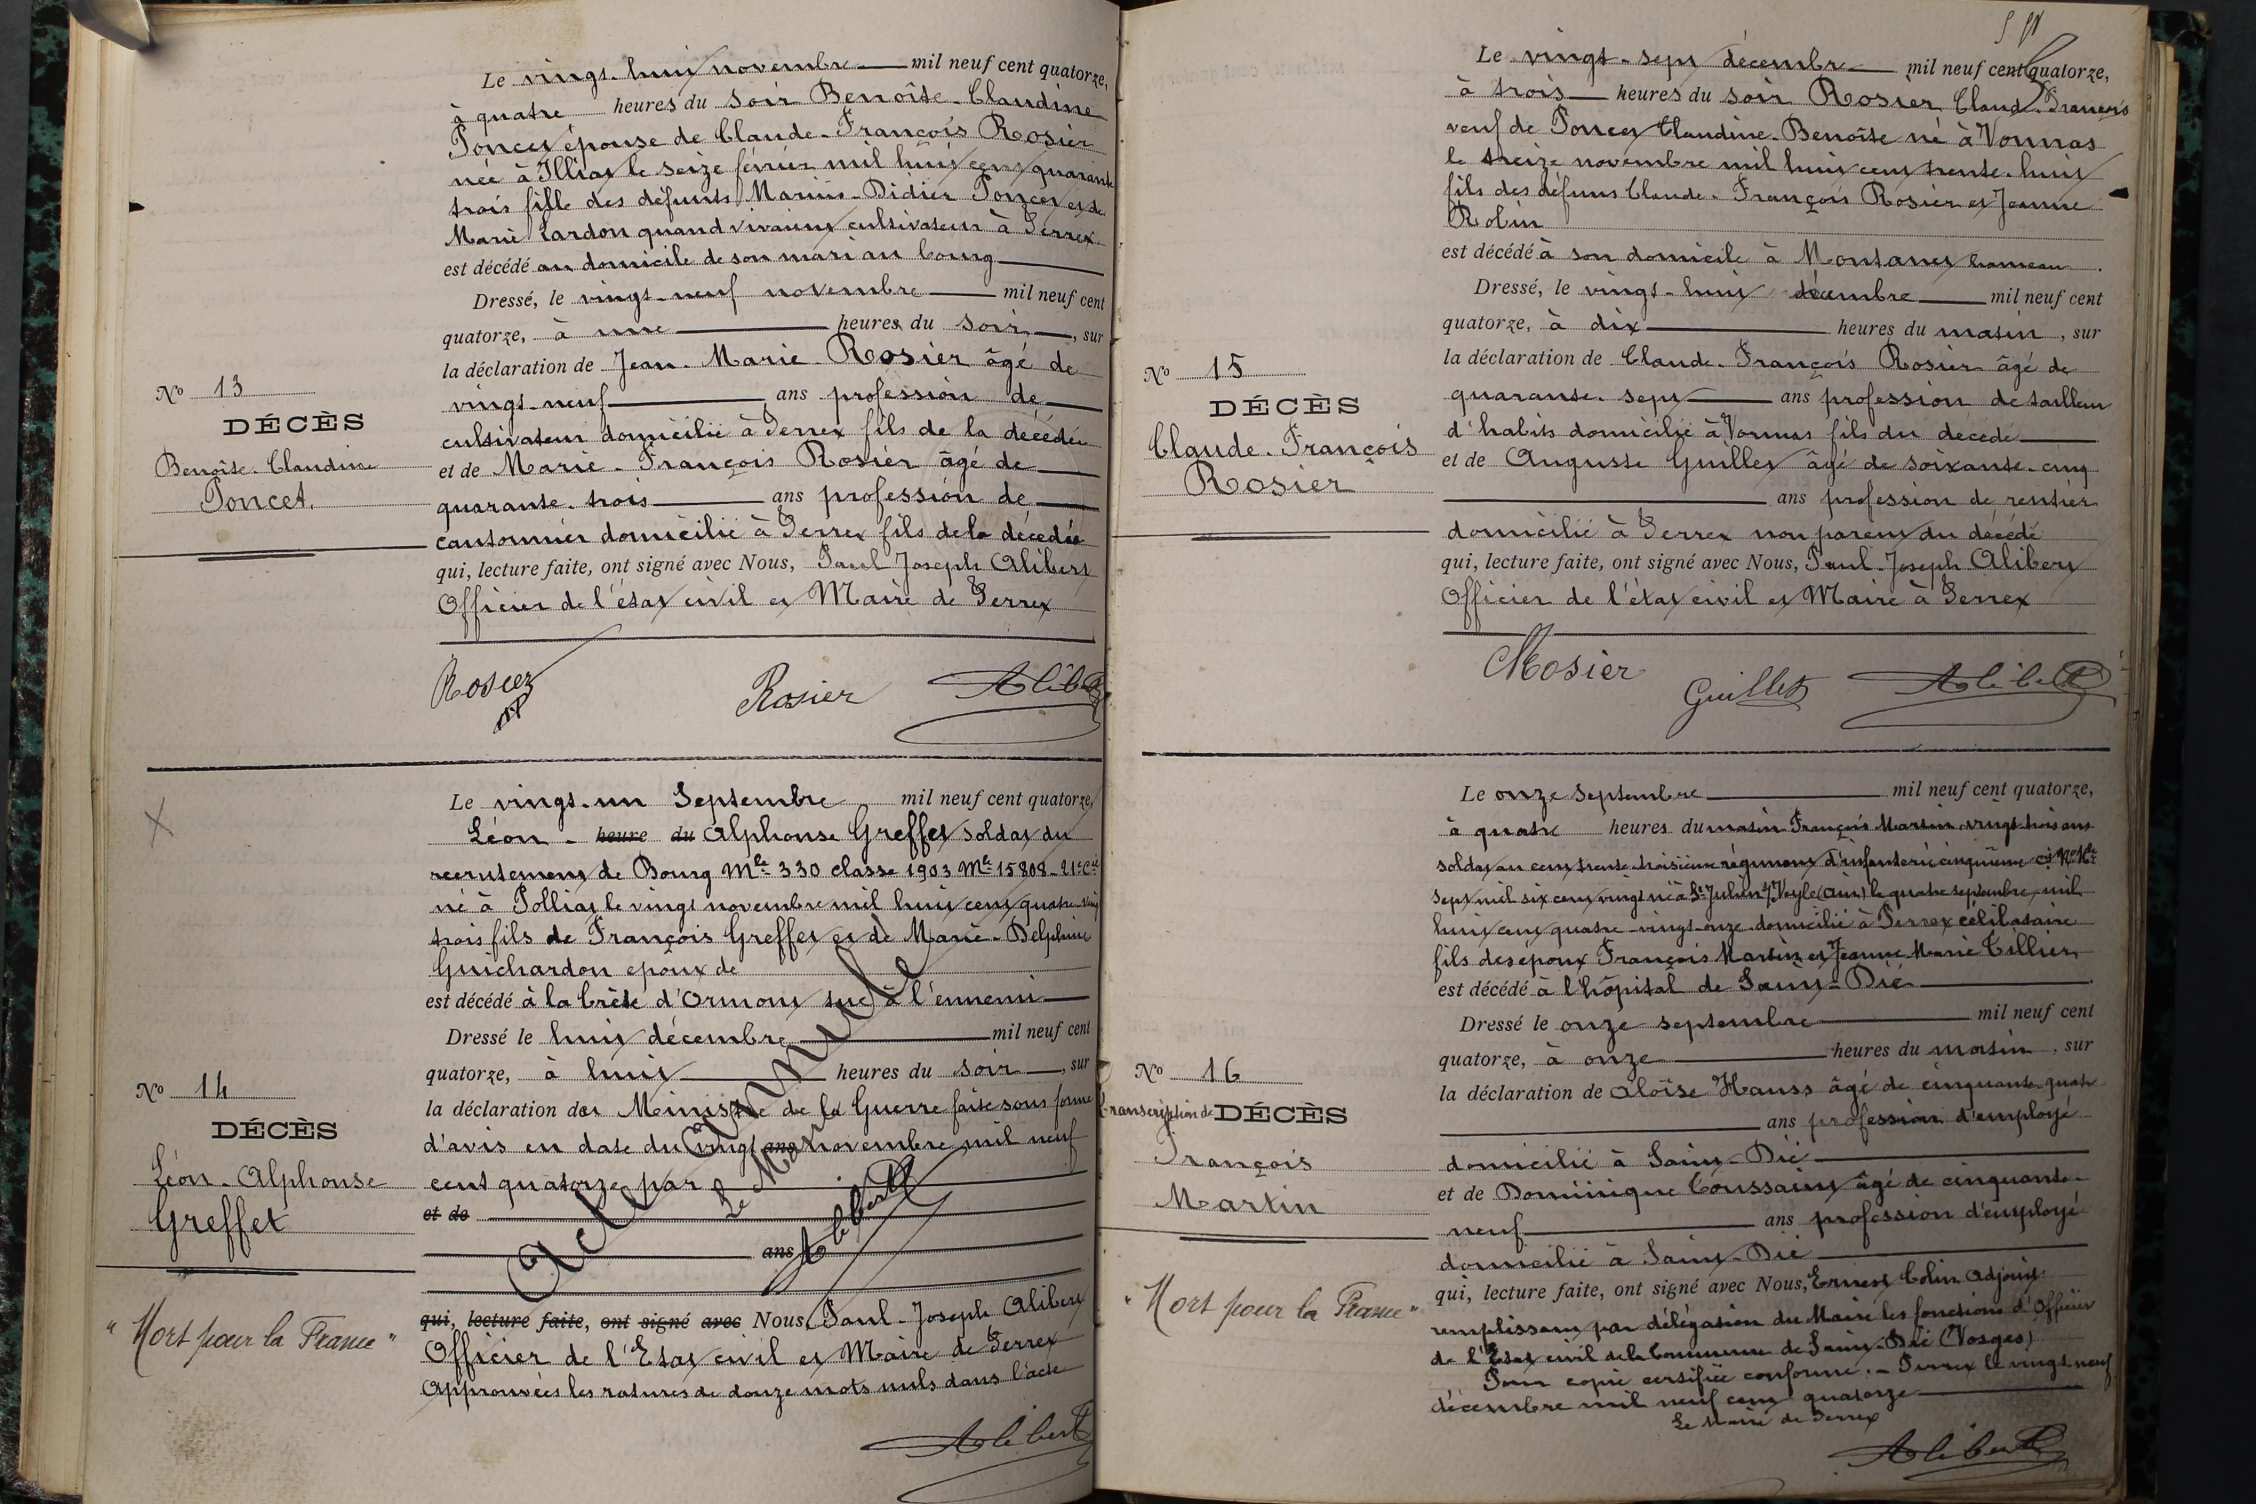 Le vingt-huit novembre mil neuf cent quatorze,
à quatre heures du soir Benoîte-Claudine
Poncet épouse de Claude-François Rosier
née à Illiat le seize février mil huit cent quarante
trois fille des défunts Marius-Didier Poncet et de
Marie Cardon quand vivaient cultivateurs à Perrex
est décédé au domicile de son mari au bourg
Dressé, le vingt-neuf novembre mil neuf cent
quatorze, à une heures du soir, sur
la déclaration de Jean-Marie Rosier âgé de
vingt-neuf ans profession de
cultivateur domicilié à Perrex fils de la décédée
et de Marie-François Rosier âgé de
quarante-trois ans profession de
cantonnier domicilié à Perrex fils de la décédée
qui, lecture faite, ont signé avec Nous, Paul Joseph Alibert
Officier de l'état civil et Maire de Perrex
Rosier Rosier Alibert
No 13
DÉCÈS
Benoîte-Claudine
Poncet.
Le vingt-un Septembre mil neuf cent quatorze,
Léon - heure du Alphonse Greffet soldat du
recrutement de Bourg Mle 330 classe 1903 Mle 15808-21e Cie
né à Polliat le vingt novembre mil huit cent quatre-vingt
trois fils de François Greffet et de Marie-Delphine
Guichardon époux de
est décédé à la Crête d'Ormont tué à l'ennemi
Dressé le huit décembre mil neuf cent
quatorze, à huit heures du soir, sur
la déclaration de Ministre de la Guerre faite sous forme
d'avis en date du vingt ans novembre mil neuf
cent quatorze par
et de
ans
qui, lecture faite, ont signé avec Nous, Paul-Joseph Alibert
Officier de l'Etat civil et Maire de Perrex
Approuvées les ratures de douze mots nuls dans l'acte
Alibert
Acte annulé
Le Maire
Alibert
No 14
DÉCÈS
Léon-Alphonse
Greffet
"Mort pour la France"
Le vingt-sept décembre mil neuf cent quatorze,
à trois heures du soir Rosier Claude François
veuf de Poncet Claudine-Benoîte né à Vonnas
le treize novembre mil huit cent trente-huit
fils des défunts Claude-François Rosier et Jeanne
Robin
est décédé à son domicile à Montanet hameau.
Dressé, le vingt-huit décembre mil neuf cent
quatorze, à dix heures du matin, sur
la déclaration de Claude-François Rosier âgé de
quarante-sept ans profession de tailleur
d'habits domicilié à Vonnas fils du décédé
et de Auguste Guillet âgé de soixante-cinq
ans profession de rentier
domicilié à Perrex non parent du décédé
qui, lecture faite, ont signé avec Nous, Paul-Joseph Alibert
Officier de l'état civil et Maire à Perrex
Rosier Guillet Alibert
No 15
DÉCÈS
Claude-François
Rosier
Le onze Septembre mil neuf cent quatorze,
à quatre heures du matin François Martin vingt trois ans
soldat au cent trente troisième régiment d'infanterie cinquième Cie No Mle
sept mil six cent vingt né à St Julien s/Veyle (Ain) le quatre septembre mil
huit cent quatre-vingt-onze domicilié à Perrex célibataire
fils des époux François Martin et Jeanne Marie Tillier
est décédé à l'hôpital de Saint-Dié
Dressé le onze septembre mil neuf cent
quatorze, à onze heures du matin, sur
la déclaration de Aloïse Hauss âgé de cinquante-quatre
ans profession d'employé
domicilié à Saint-Dié
et de Dominique Toussaint âgé de cinquante-
neuf ans profession d'employé
domicilié à Saint-Dié
qui, lecture faite, ont signé avec Nous, Ernest Colin Adjoint
remplissant par délégation du Maire les fonctions d'Officier
de l'Etat civil de la Commune de Saint-Dié (Vosges)
Pour copie certifiée conforme. - Perrex le vingt-neuf
décembre mil neuf cent quatorze
Le Maire de Perrex
Alibert
No 16
Transcription de DÉCÈS
François
Martin
"Mort pour la France"